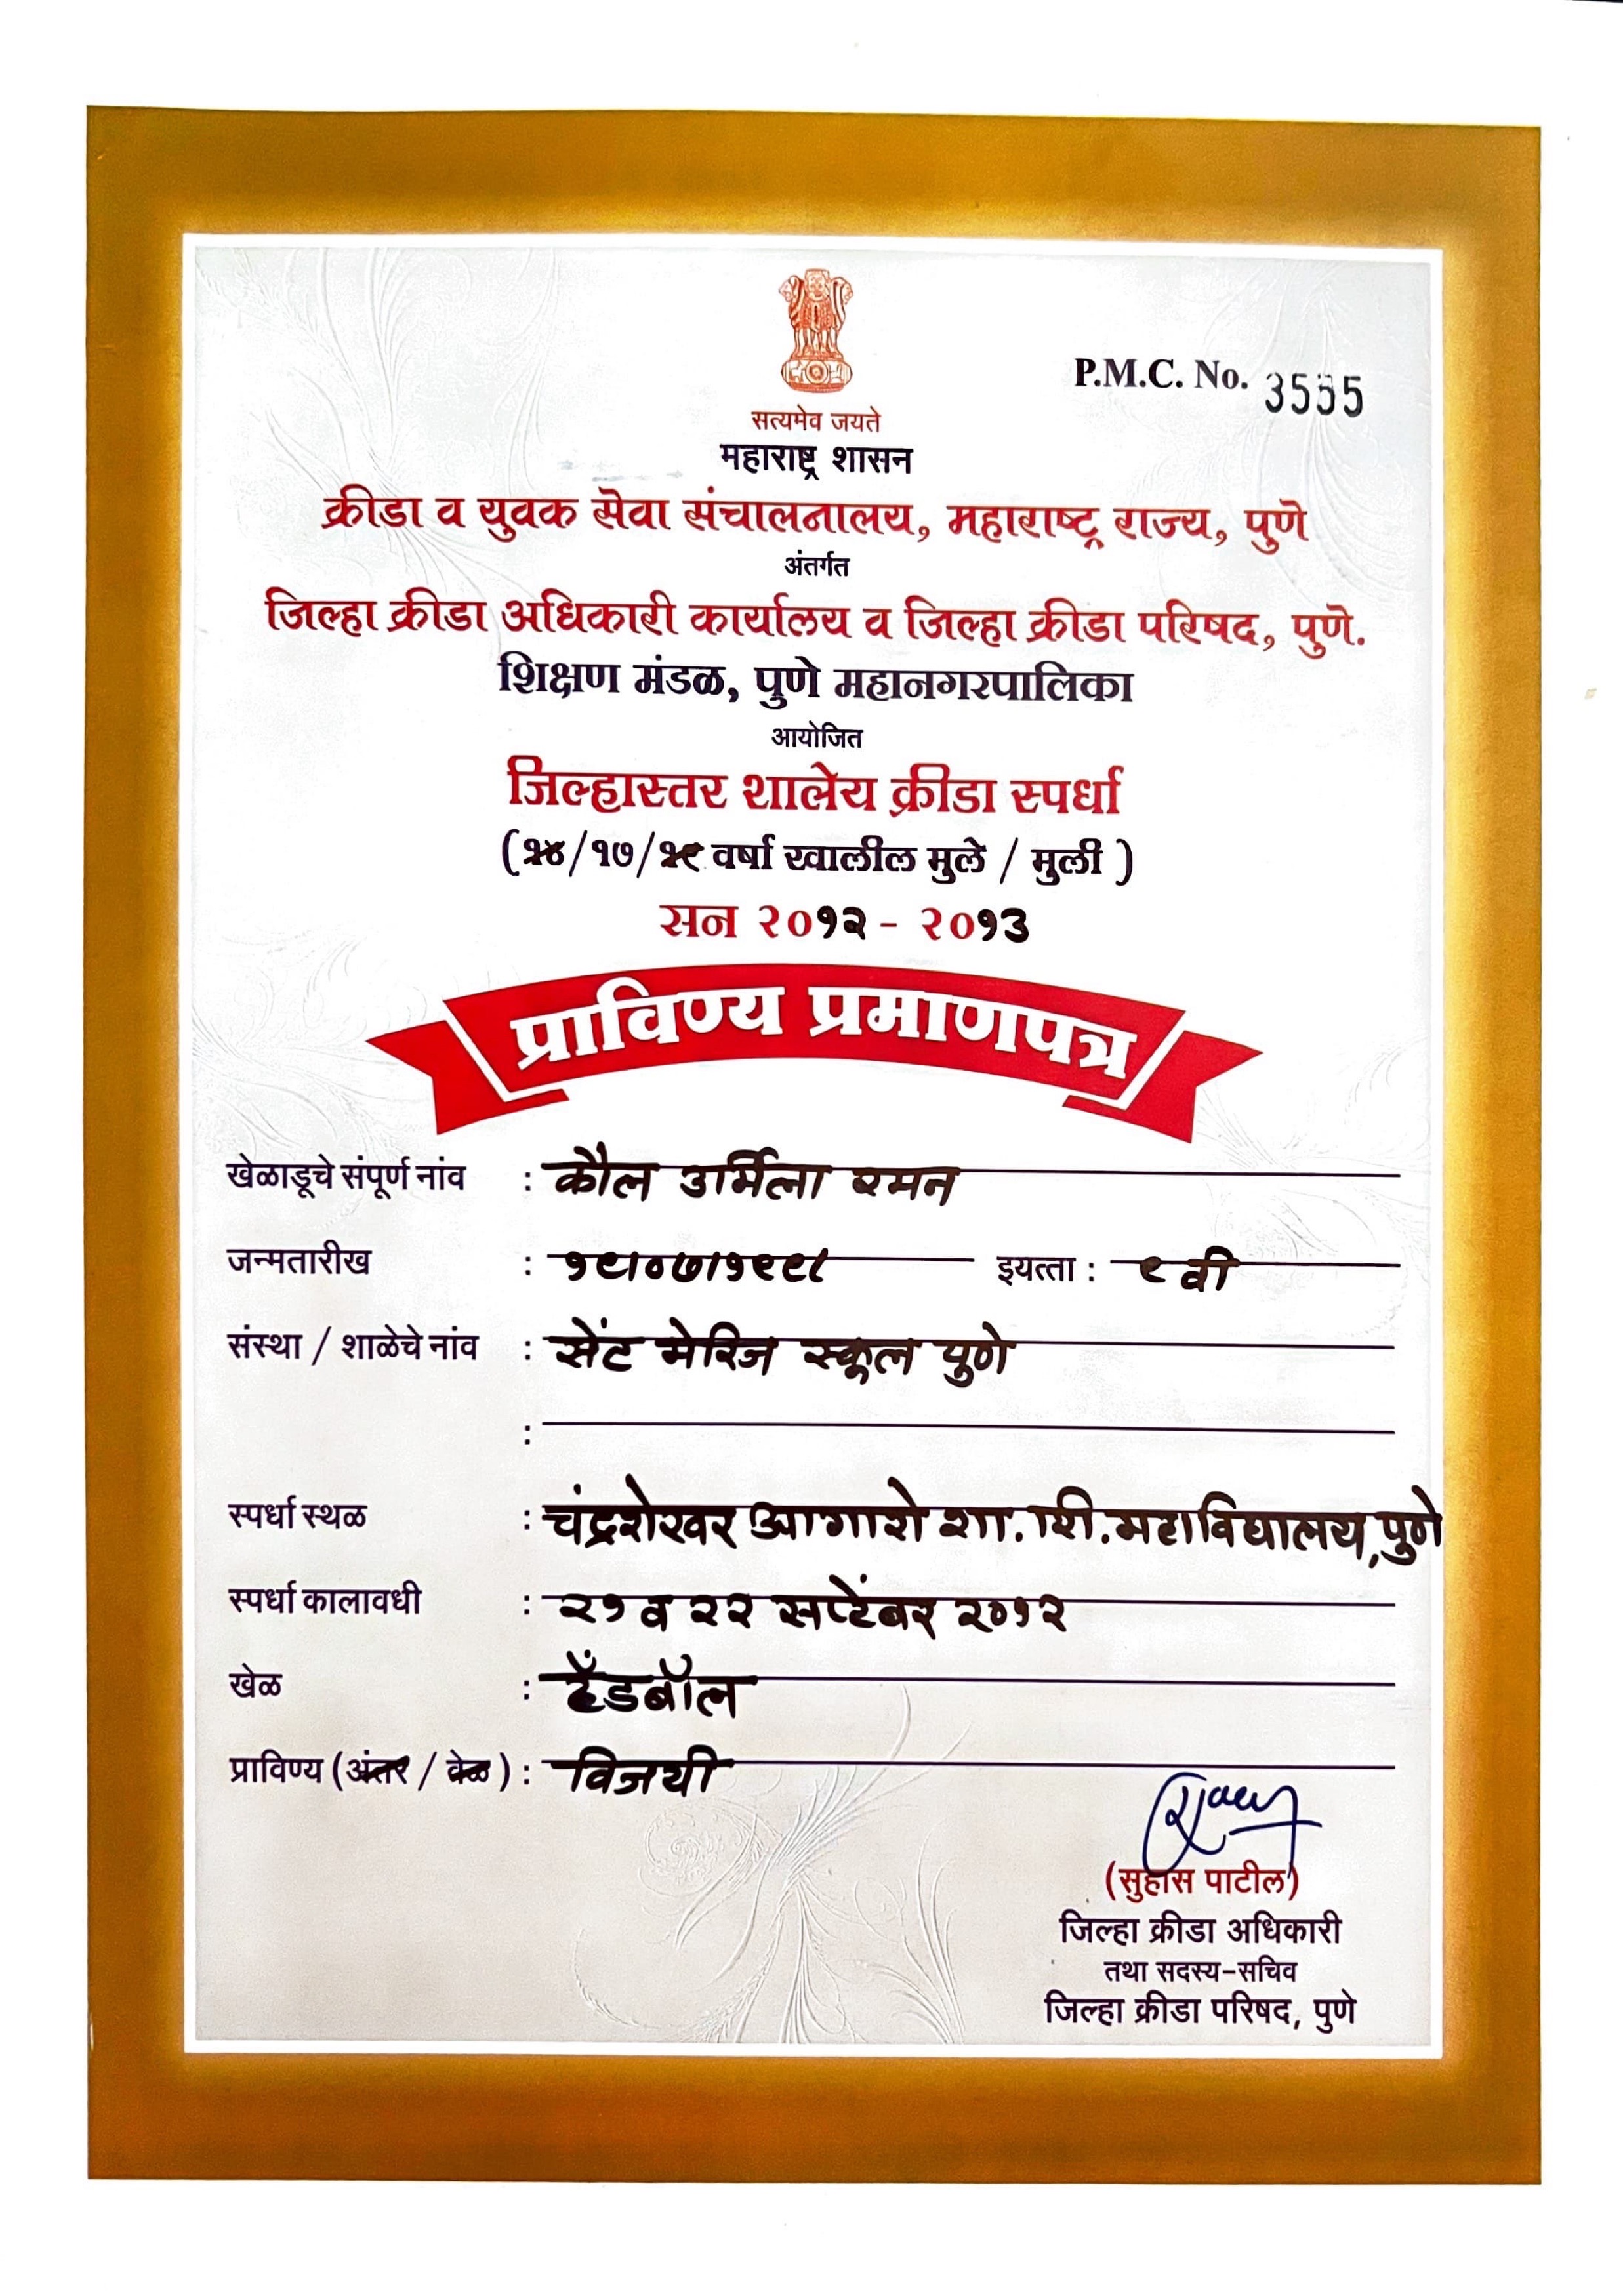 P.M.C. No. 3535
सत्यमेव जयते
महाराष्ट्र शासन
क्रीडा व युवक सेवा संचालनालय, महाराष्ट्र राज्य, पुणे
अंतर्गत
जिल्हा क्रीडा अधिकारी कार्यालय व जिल्हा क्रीडा परिषद, पुणे.
शिक्षण मंडळ, पुणे महानगरपालिका
आयोजित
जिल्हास्तर शालेय क्रीडा स्पर्धा
(१४/१७/१९ वर्षा खालील मुले / मुली )
सन २०१२ - २०१३
प्राविण्य प्रमाणपत्र
खेळाडूचे संपूर्ण नांव : कौल उर्मिला रमन
जन्मतारीख : १८।०७।१९९८ इयत्ता : ९ वी
संस्था / शाळेचे नांव : सेंट मेरिज स्कूल पुणे
:
स्पर्धा स्थळ : चंद्रशेखर आगाशे शा. शि. महाविद्यालय, पुणे
स्पर्धा कालावधी : २१ व २२ सप्टेंबर २०१२
खेळ : हँडबॉल
प्राविण्य (अंतर / वेळ) : विजयी
(सुहास पाटील)
जिल्हा क्रीडा अधिकारी
तथा सदस्य-सचिव
जिल्हा क्रीडा परिषद, पुणे